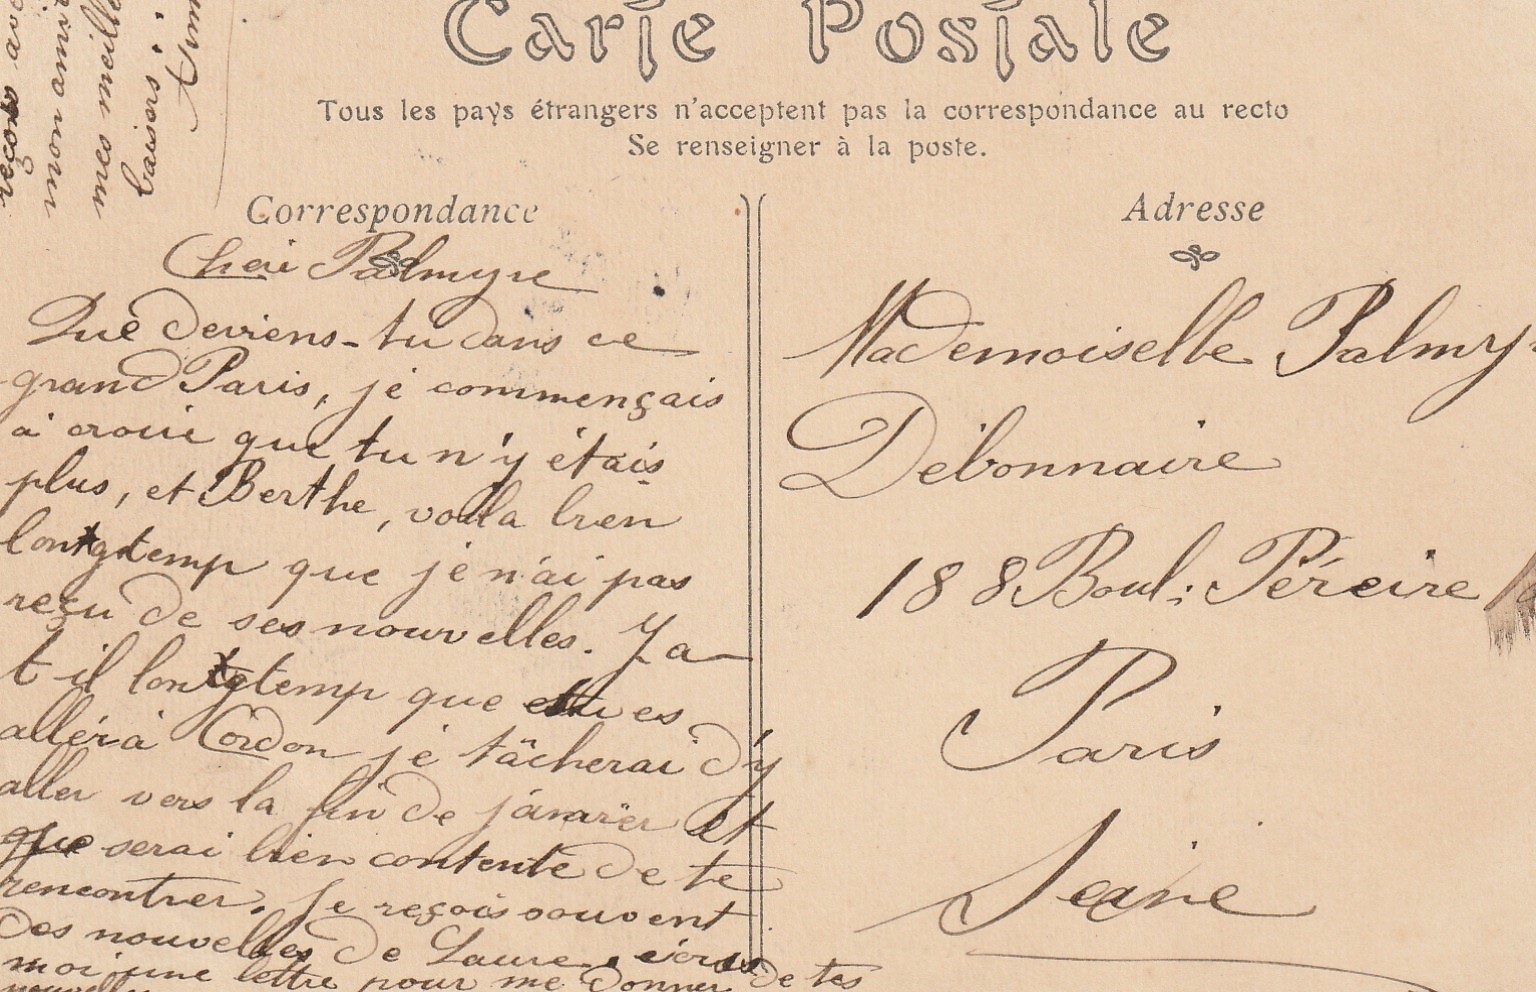 Carte Postale
Tous les pays étrangers n'acceptent pas la correspondance au recto
Se renseigner à la poste.
Correspondance
Adresse
Palmyre
Que deviens-tu dans ce
grand Paris, je commençais
à croire que tu n'y étais
plus, et Berthe, voila bien
longtemp que je n'ai pas
reçu de ses nouvelles. Y a
t-il longtemp que tu es
allér à Cordon je tâcherai d'y
aller vers la fin de janvier et
que serai bien contente de te
rencontrer. Je reçois souvent
des nouvelles de Laure. écris
moi une lettre pour me donner de tes
Mademoiselle Palmy
Débonnaire
188 Boul. Péreire
Paris
Seine
reçois
mes meille
baisers